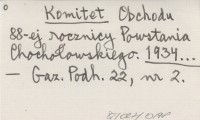 Komitet Obchodu
88-ej rocznicy Powstania
Chochołowskiego. 1934...
— Gaz. Podh. 22, nr 2.